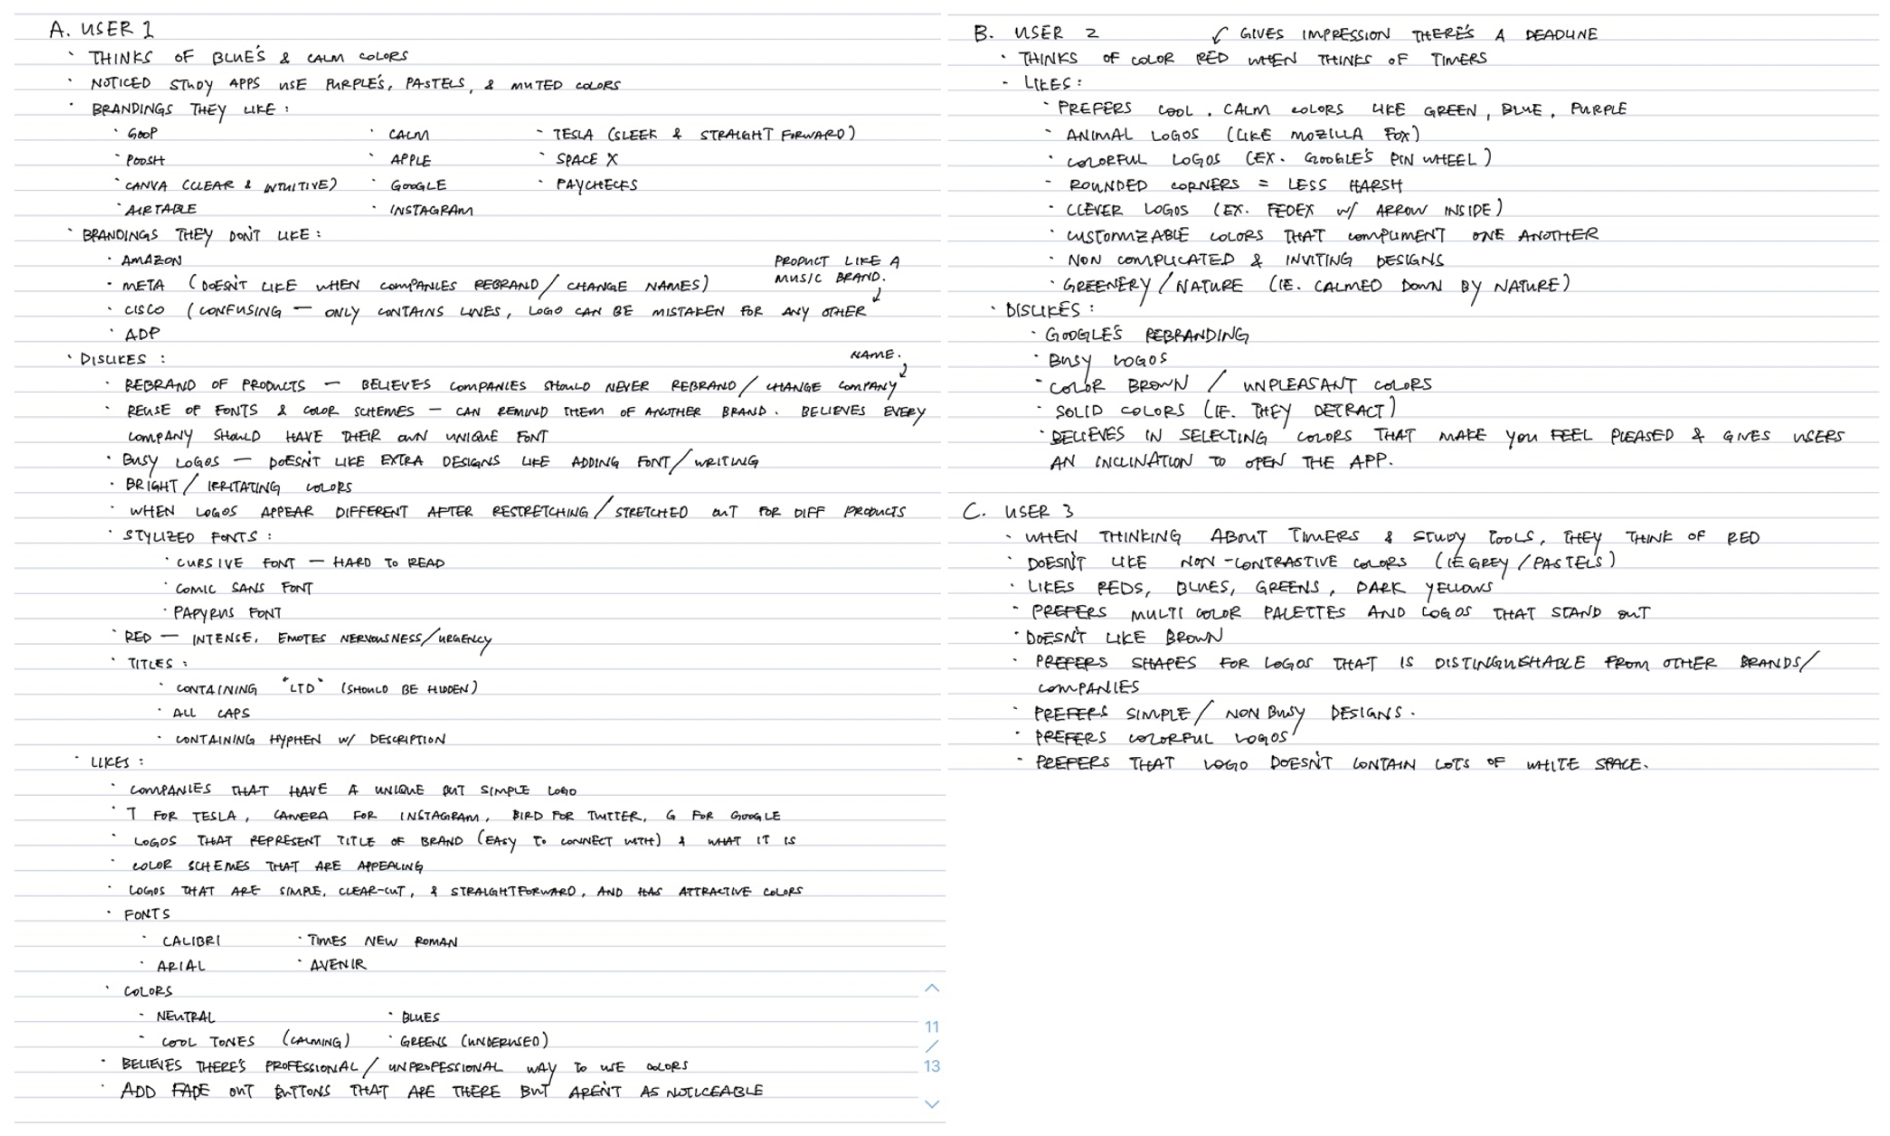 A. USER 1
· THINKS OF BLUE'S & CALM COLORS
· NOTICED STUDY APPS USE PURPLE'S, PASTELS, & MUTED COLORS
· BRANDINGS THEY LIKE :
· GOOP · CALM · TESLA (SLEEK & STRAIGHT FORWARD)
· POOSH · APPLE · SPACE X
· CANVA (CLEAR & INTUITIVE) · GOOGLE · PAYCHECKS
· AIRTABLE · INSTAGRAM
· BRANDINGS THEY DON'T LIKE :
· AMAZON
· META (DOESN'T LIKE WHEN COMPANIES REBRAND / CHANGE NAMES)
· CISCO (CONFUSING — ONLY CONTAINS LINES, LOGO CAN BE MISTAKEN FOR ANY OTHER
PRODUCT LIKE A
MUSIC BRAND.
· ADP
· DISLIKES :
· REBRAND OF PRODUCTS — BELIEVES COMPANIES SHOULD NEVER REBRAND / CHANGE COMPANY
NAME.
· REUSE OF FONTS & COLOR SCHEMES — CAN REMIND THEM OF ANOTHER BRAND. BELIEVES EVERY
COMPANY SHOULD HAVE THEIR OWN UNIQUE FONT
· BUSY LOGOS — DOESN'T LIKE EXTRA DESIGNS LIKE ADDING FONT / WRITING
· BRIGHT / IRRITATING COLORS
· WHEN LOGOS APPEAR DIFFERENT AFTER RESTRETCHING / STRETCHED OUT FOR DIFF PRODUCTS
· STYLIZED FONTS :
· CURSIVE FONT — HARD TO READ
· COMIC SANS FONT
· PAPYRUS FONT
· RED — INTENSE, EMOTES NERVOUSNESS/URGENCY
· TITLES :
· CONTAINING "LTD" (SHOULD BE HIDDEN)
· ALL CAPS
· CONTAINING HYPHEN W/ DESCRIPTION
· LIKES :
· COMPANIES THAT HAVE A UNIQUE BUT SIMPLE LOGO
· T FOR TESLA, CAMERA FOR INSTAGRAM, BIRD FOR TWITTER, G FOR GOOGLE
· LOGOS THAT REPRESENT TITLE OF BRAND (EASY TO CONNECT WITH) & WHAT IT IS
· COLOR SCHEMES THAT ARE APPEALING
· LOGOS THAT ARE SIMPLE, CLEAR-CUT, & STRAIGHTFORWARD, AND HAS ATTRACTIVE COLORS
· FONTS
· CALIBRI · TIMES NEW ROMAN
· ARIAL · AVENIR
· COLORS
· NEUTRAL · BLUES
· COOL TONES (CALMING) · GREENS (UNDERUSED)
· BELIEVES THERE'S PROFESSIONAL / UNPROFESSIONAL WAY TO USE COLORS
· ADD FADE OUT BUTTONS THAT ARE THERE BUT AREN'T AS NOTICEABLE
11
/
13
B. USER 2
GIVES IMPRESSION THERE'S A DEADLINE
· THINKS OF COLOR RED WHEN THINKS OF TIMERS
· LIKES :
· PREFERS COOL, CALM COLORS LIKE GREEN, BLUE, PURPLE
· ANIMAL LOGOS (LIKE MOZILLA FOX)
· COLORFUL LOGOS (EX. GOOGLE'S PIN WHEEL)
· ROUNDED CORNERS = LESS HARSH
· CLEVER LOGOS (EX. FEDEX W/ ARROW INSIDE)
· CUSTOMIZABLE COLORS THAT COMPLIMENT ONE ANOTHER
· NON COMPLICATED & INVITING DESIGNS
· GREENERY / NATURE (IE. CALMED DOWN BY NATURE)
· DISLIKES :
· GOOGLE'S REBRANDING
· BUSY LOGOS
· COLOR BROWN / UNPLEASANT COLORS
· SOLID COLORS (IE. THEY DETRACT)
· BELIEVES IN SELECTING COLORS THAT MAKE YOU FEEL PLEASED & GIVES USERS
AN INCLINATION TO OPEN THE APP.
C. USER 3
· WHEN THINKING ABOUT TIMERS & STUDY TOOLS, THEY THINK OF RED
· DOESN'T LIKE NON-CONTRASTIVE COLORS (IE GREY / PASTELS)
· LIKES REDS, BLUES, GREENS, DARK YELLOWS
· PREFERS MULTI COLOR PALETTES AND LOGOS THAT STAND OUT
· DOESN'T LIKE BROWN
· PREFERS SHAPES FOR LOGOS THAT IS DISTINGUISHABLE FROM OTHER BRANDS/
COMPANIES
· PREFERS SIMPLE / NON BUSY DESIGNS.
· PREFERS COLORFUL LOGOS
· PREFERS THAT LOGO DOESN'T CONTAIN LOTS OF WHITE SPACE.